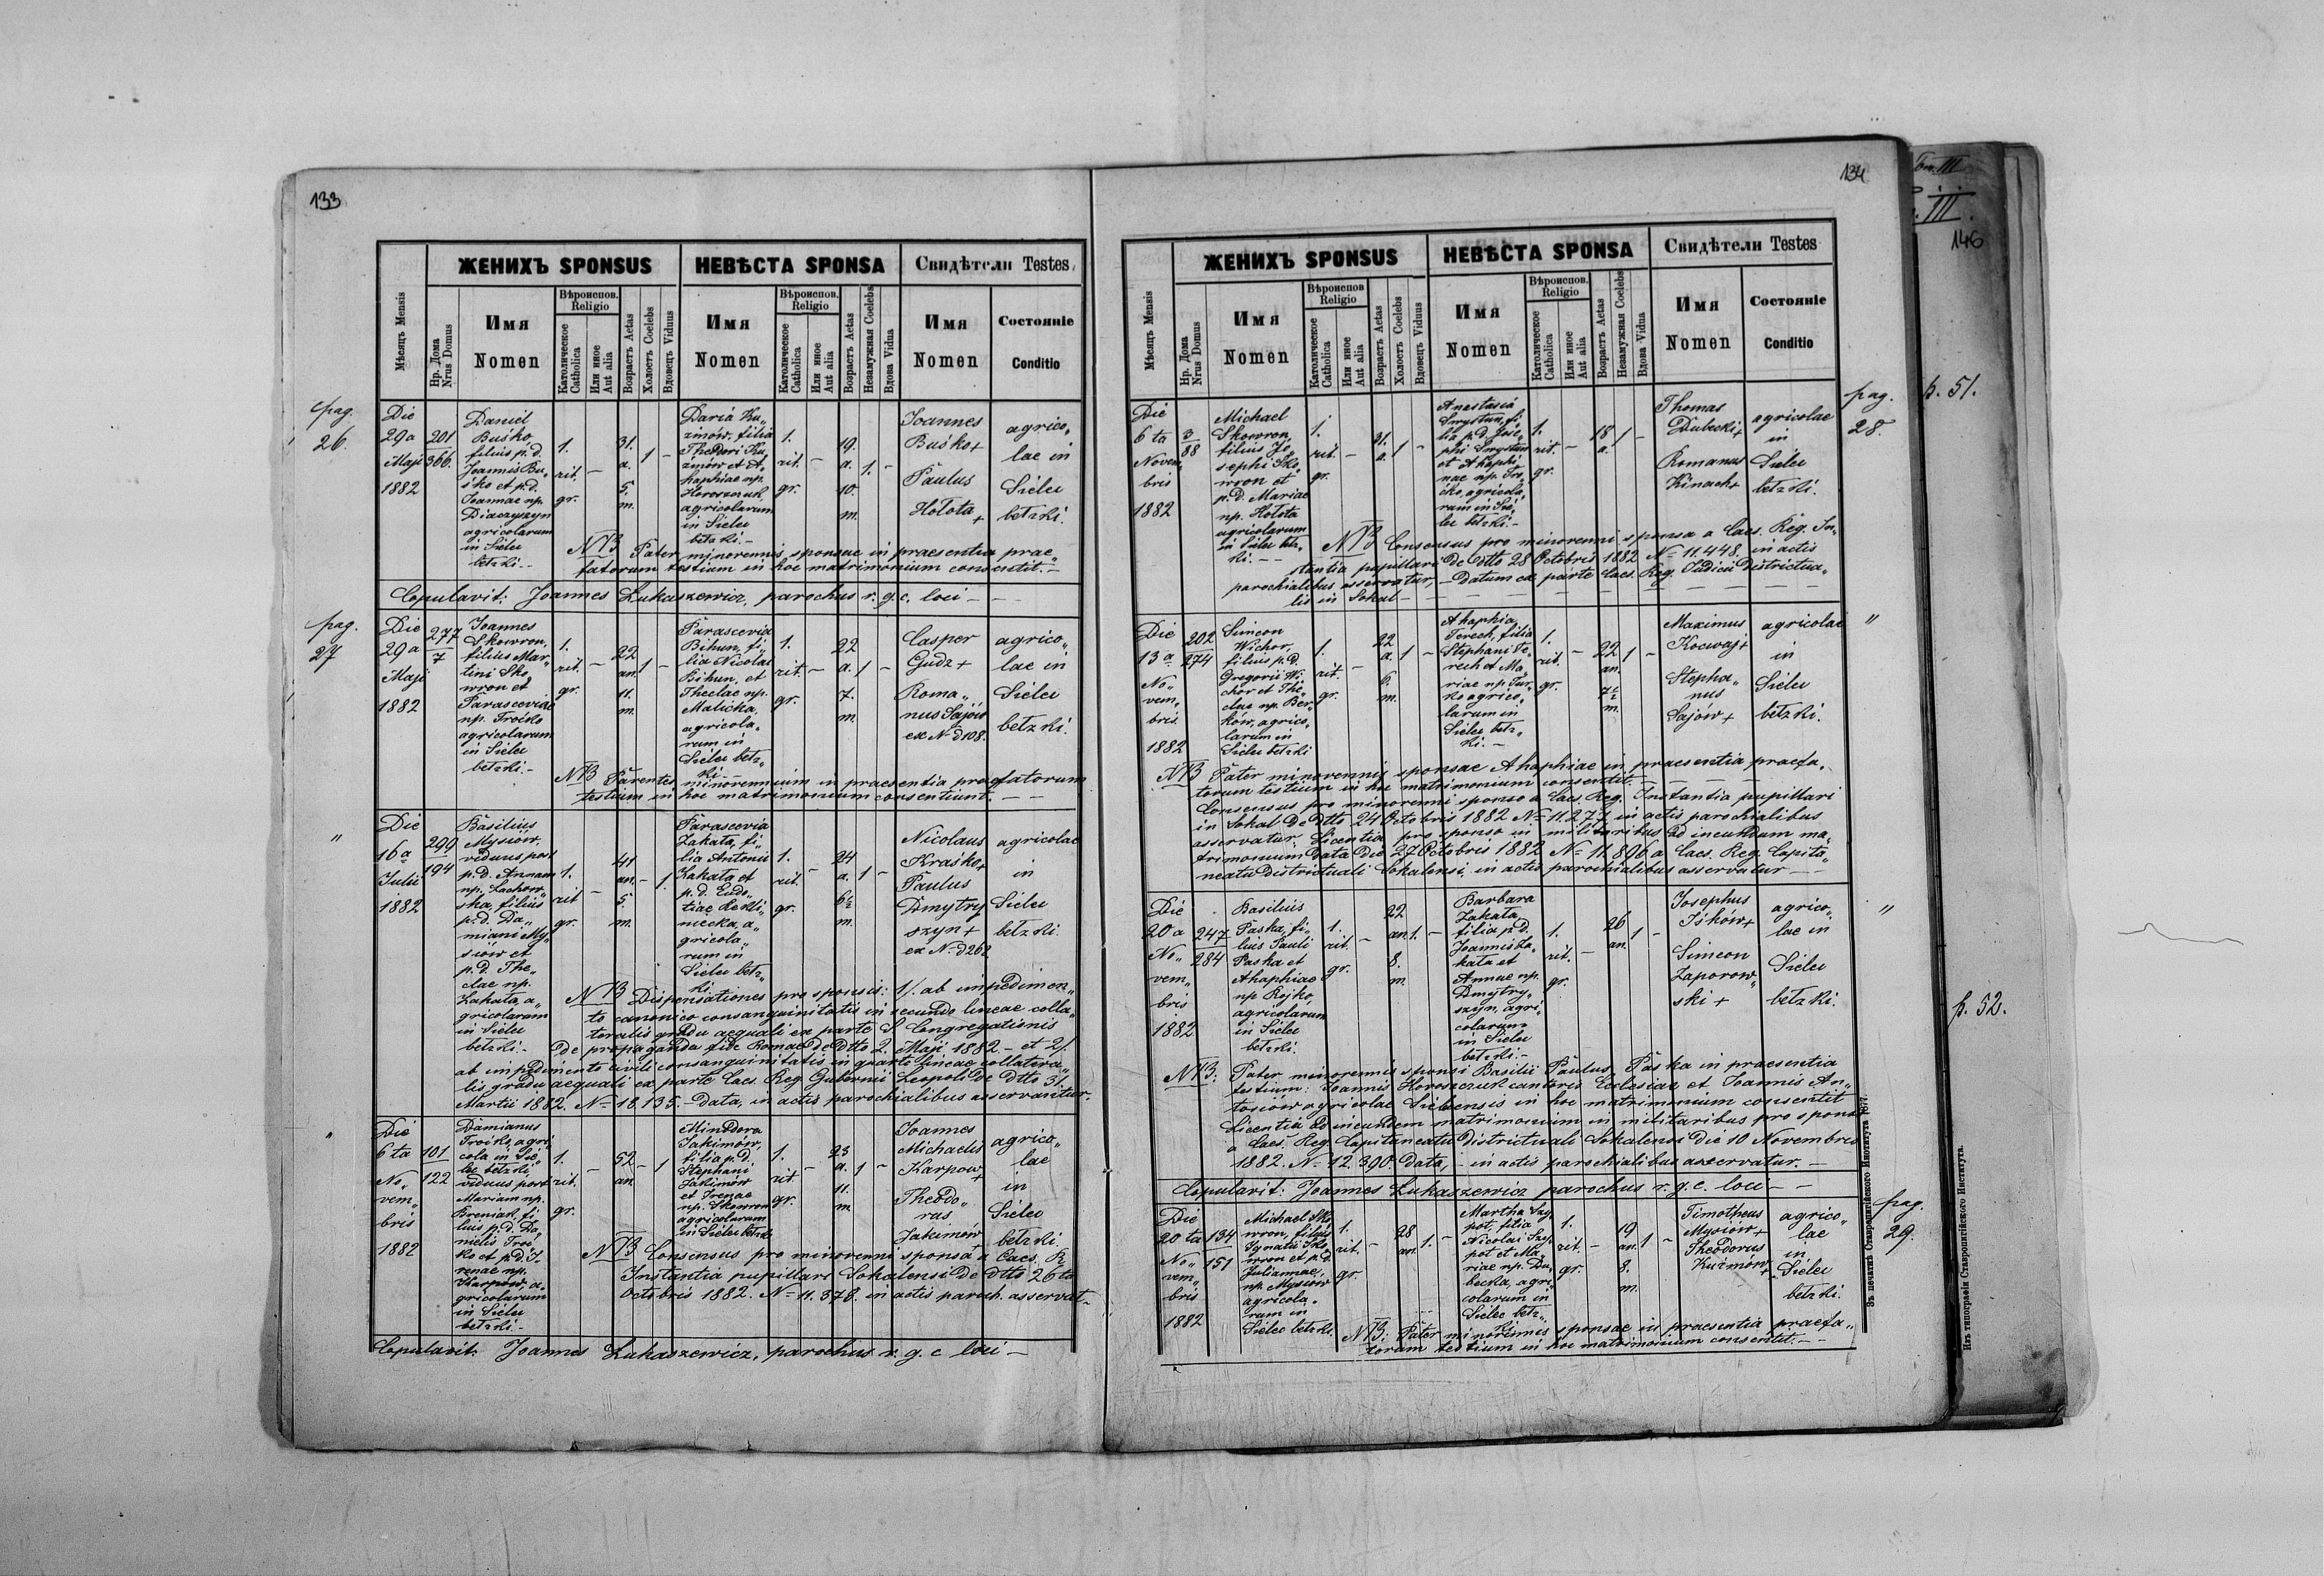 133
ЖЕНИХЪ SPONSUS
НЕВѢСТА SPONSA
Свидѣтели Testes
Мѣсяцъ Mensis
Нр. Дома
Nrus Domus
Имя
Nomen
Вѣроиспов.
Religio
Католическое
Catholica
Или иное
Aut alia
Возрастъ Aetas
Холостъ Coelebs
Вдовецъ Viduus
Имя
Nomen
Вѣроиспов.
Religio
Католическое
Catholica
Или иное
Aut alia
Возрастъ Aetas
Незамужная Coelebs
Вдова Vidua
Имя
Nomen
Состояніе
Conditio
pag.
26.
Die
29a
Maji
1882
201
366.
Daniel
Buśko,
filius p. d.
Joannis Bu„
śko et p. d.
Joannae np.
Diaczyszyn
agricolarum
in Sielec
betzki.-
1.
rit.
gr.
-
31.
a.
5.
m.
1
-
Daria Ku„
zmów, filia
Theodori Ku„
zmów et A„
haphiae np.
Horoszczuk,
agricolarum
in Sielec
betzki.-
1.
rit.
gr.
-
19.
a.
10.
m.
1.
-
Joannes
Buśko+
Paulus
Hołota
+
agrico„
lae in
Sielec
betzki.
NB Pater minorennis sponsae in praesentia prae„
fatorum testium in hoc matrimonium consentit.-
Copulavit: Joannes Łukaszewicz, parochus r. g. c. loci -
pag.
27
Die
29a
Maji
1882
277
7
Joannes
Skowron,
filius Mar„
tini Sko„
wron et
Parasceviae
np. Troćko
agricolarum
in Sielec
betzki.-
1.
rit.
gr.
-
22
an.
11.
m.
1
-
Parascevia
Bihun, fi„
lia Nicolai
Bihun, et
Theclae np.
Malicka,
agricola„
rum in
Sielec betz„
ki.-
1.
rit
gr.
-
22
a.
7.
m
1
-
Casper
Gudz+
Roma„
nus Sajów
ex N-d 108.
agrico„
lae in
Sielec
betzki.
NB Parentes minorennium in praesentia praefatorum
testium in hoc matrimonium consentiunt.-
"
Die
16a
Julii
1882
299
194
Basilius
Mysiów,
viduus post
p. d. Annam
np. Lachow„
ska, filius
p. d. Da„
miani My„
siów et
p. d. The„
clae np.
Zakata, a„
gricolarum
in Sielec
betzki.-
1.
rit
gr.
-
41
an.
5.
m.
-
1.
Parascevia
Zakata, fi„
lia Antonii
Zakata et
p. d. Eudo„
tiae Rekli„
niecka, a„
gricola„
rum in
Sielec betz„
ki.
1.
rit.
gr.
-
24
a.
6½
m.
1
-
Nicolaus
Kraśko+
Paulus
Dmytry„
szyn +
ex N-d 262
agricolae
in
Sielec
betzki.
NB Dispensationes pro sponsis: 1/. ab impedimen„
to canonico consanguinitatis in secundo lineae colla„
teralis gradu aequali ex parte S. Congregationis
de propaganda fide Romae de dtto 2. Maji 1882 - et 2/.
ab impedimento civili consanguinitatis in quarto lineae collatera„
lis gradu aequali ex parte Caes. Reg. Gubernii Leopoli de dtto 31.
Martii 1882. No 18.135.- data, in actis parochialibus asservantur.-
"
Die
6 ta
No„
vem„
bris
1882
101
122
Damianus
Troćko, agri„
cola in Sie„
lec betzki,
viduus post
Mariam np.
Breniak, fi„
lius p. d. Da„
nielis Troć„
ko et p. d. I„
renae np.
Karpow, a„
gricolarum
in Sielec
betzki.-
1.
rit.
gr.
-
52
an
-
1
Minodora
Jakimów,
filia p. d.
Stephani
Jakimów
et Irenae
np. Skowron
agricolarum
in Sielec betzki.
1.
rit
gr.
-
23
a.
11.
m.
1
-
Joannes
Michaelis
Karpow
+
Theodo„
rus
Jakimów
agrico„
lae
in
Sielec
betzki.
NB Consensus pro minorenni sponsa a Caes. R.
Instantia pupillari Sokalensi de dtto 26to
Octobris 1882. No 11.378. in actis paroch. asservat-
Copulavit: Joannes Łukaszewicz, parochus r. g. c loci -
134
ЖЕНИХЪ SPONSUS
НЕВѢСТА SPONSA
Свидѣтели Testes
Мѣсяцъ Mensis
Нр. Дома
Nrus Domus
Имя
Nomen
Вѣроиспов.
Religio
Католическое
Catholica
Или иное
Aut alia
Возрастъ Aetas
Холостъ Coelebs
Вдовецъ Viduus
Имя
Nomen
Вѣроиспов.
Religio
Католическое
Catholica
Или иное
Aut alia
Возрастъ Aetas
Незамужная Coelebs
Вдова Vidua
Имя
Nomen
Состояніе
Conditio
pag.
28.
Die
6 ta
Novem„
bris
1882
3
88
Michael
Skowron,
filius Jo„
sephi Sko„
wron et
p. d. Mariae
np. Hołota
agricolarum
in Sielec betz„
ki.-
1.
rit.
gr.
-
21.
a.
1
-
Anastasia
Smystun, fi„
lia p. d. Jose„
phi Smystun
et Ahaphi„
nae np. Tro„
ćko, agricola„
rum in Sie„
lec betzki.-
1.
rit.
gr.
-
18
a.
1
-
Thomas
Dubecki+
Romanus
Kinach+
agricolae
in
Sielec
betzki.
NB Consensus pro minorenni sponsa a Caes. Reg. In„
stantia pupillari de dtto 28 Octobris 1882 No 11.448. in actis
parochialibus asservatur,- datum ex parte Caes. Reg. Judicii Districtua„
lis in Sokal -
"
Die
13 a
No„
vem„
bris
1882
202
274
Simeon
Wichor,
filius p. d.
Gregorii Wi„
chor et The„
clae np. Ber„
ków, agrico„
larum in
Sielec betzki
1.
rit.
gr.
-
22
a.
6.
m.
1
-
Ahaphia
Terech, filia
Stephani Te„
rech et Ma„
riae np. Tur„
ko agrico„
larum in
Sielec betz„
ki.-
1.
rit.
gr.
-
22
an.
7½
m.
1
-
Maximus
Kocwaj+
Stepha„
nus
Sajów+
agricolae
in
Sielec
betzki.
NB Pater minorennis sponsae Ahaphiae in praesentia praefa„
torum testium in hoc matrimonium consentit.-
Consensus pro minorenni sponso a Caes. Reg. Instantia pupillari
in Sokal de dtto 24 Octobris 1882 No 11.277 in actis parochialibus
asservatur. Licentia pro sponso in militaribus ad ineundum ma„
trimonium data die 27 Octobris 1882 No 11.896 a Caes. Reg. Capita„
neatu Districtuali Sokalensi, in actis parochialibus asservatur -
"
Die
20 a
No„
vem„
bris
1882
247
284
Basilius
Paska, fi„
lius Pauli
Paska et
Ahaphiae
np. Rojko,
agricolarum
in Sielec
betzki.
1.
rit.
gr.
-
22
an.
8.
m.
1.
-
Barbara
Zakata,
filia p. d.
Joannis Za„
kata et
Annae np.
Dmytry„
szyn, agri„
colarum
in Sielec
betzki.-
1.
rit.
gr.
-
26
an.
1
-
Josephus
Iśków+
Simeon
Zaporow„
ski +
agrico„
lae in
Sielec
betzki.
NB: Pater minorennis sponsi Basilii Paulus Paska in praesentia
testium: Joannis Horoszczuk cantoris Ecclesiae et Joannis An„
tosiów agricolae Sielcensis in hoc matrimonium consentit
Licentia ad ineundem matrimonium in militaribus pro sponso
a Caes. Reg. Capitaneatu Districtuali Sokalensi die 10 Novembris
1882. No 12.390. data,- in actis parochialibus asservatur.-
Copulavit: Joannes Łukaszewicz parochus r. g. c. loci -
pag.
29.
Die
20 ta
No„
vem„
bris
1882
134
151
Michael Sko„
wron, filius
Ignatii Sko„
wron et p. d.
Juliannae,
np. Mysiów
agricola„
rum in
Sielec betzki.
1.
rit.
gr.
-
28
an.
1.
-
Martha Szy„
pot, filia
Nicolai Szy„
pot et Ma„
riae np. Du„
becka, agri„
colarum in
Sielec betz„
ki.
1.
rit.
gr.
-
19
an.
8.
m.
1
-
Timotheus
Mysiów+
Theodorus
Kuźmów
+
agrico„
lae
in
Sielec
betzki.
NB: Pater minorennis sponsae in praesentia praefa„
torum testium in hoc matrimonium consentit.-
Зъ печатнѣ Ставропигійского Института 1877.
Tom. III
III.
146
p. 51.
p. 52.
Изъ типографіи Ставропигійского Института.